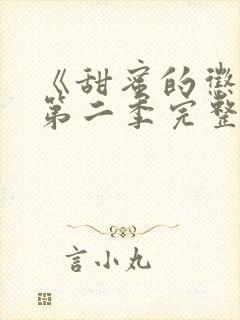 《甜蜜的惩
第二季完整
言小丸